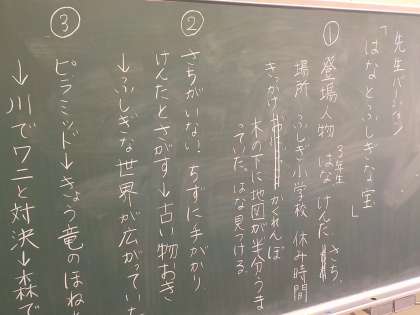 先生バージョン
「はなとふしぎな宝」
①登場人物 はな けんた さち
3年生
場所 ふしぎ小学校 休み時間
きっかけ かくれんぼ
木の下に地図が半分うま
っていた。はな見つける。
②さちがいない!ちずに手がかり。
けんたとさがす→古い物おき
→ふしぎな世界が広がっていた
③ピラミッド→きょう竜のほね
→川でワニと対決→森で